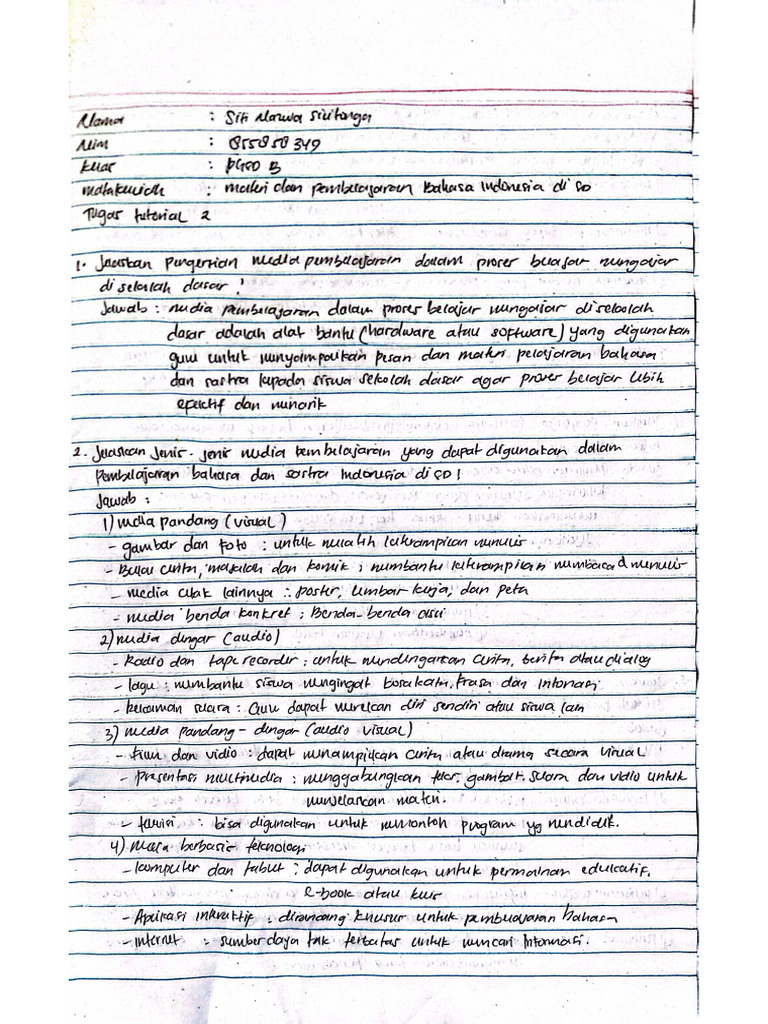 Nama : Siti Marwa Siritonga
Nim : 855858349
Kelas : PGSD B
Matakuliah : materi dan pembelajaran Bahasa Indonesia di SD
Tugas tutorial 2
1. Jelaskan pengertian media pembelajaran dalam proses belajar mengajar
di sekolah dasar !
Jawab : media pembelajaran dalam proses belajar mengajar di sekolah
dasar adalah alat bantu (hardware atau software) yang digunakan
guru untuk menyampaikan pesan dan materi pelajaran bahasa
dan sastra kepada siswa sekolah dasar agar proses belajar lebih
efektif dan menarik
2. Jelaskan jenis-jenis media pembelajaran yang dapat digunakan dalam
pembelajaran bahasa dan sastra Indonesia di SD !
Jawab :
1) media pandang (visual)
- gambar dan foto : untuk melatih keterampilan menulis
- Buku cerita, majalah dan komik : membantu keterampilan membaca d menulis
- media cetak lainnya : poster, lembar kerja, dan peta
- media benda konkret : Benda-benda asli
2) media dengar (audio)
- Radio dan tape recorder : untuk mendengarkan cerita, berita atau dialog
- lagu : membantu siswa mengingat kosakata, frasa dan intonasi
- rekaman suara : Guru dapat merekam diri sendiri atau siswa lain
3) media pandang-dengar (audio visual)
- film dan vidio : dapat menampilkan cerita atau drama secara visual
- presentasi multimedia : menggabungkan teks, gambar, suara dan vidio untuk
menjelaskan materi.
- televisi : bisa digunakan untuk menonton program yg mendidik.
4) media berbasis teknologi
- komputer dan tablet : dapat digunakan untuk permainan edukatif,
e-book atau kuis
- Aplikasi interaktif : dirancang khusus untuk pembelajaran bahasa
- internet : sumber daya tak terbatas untuk mencari informasi.